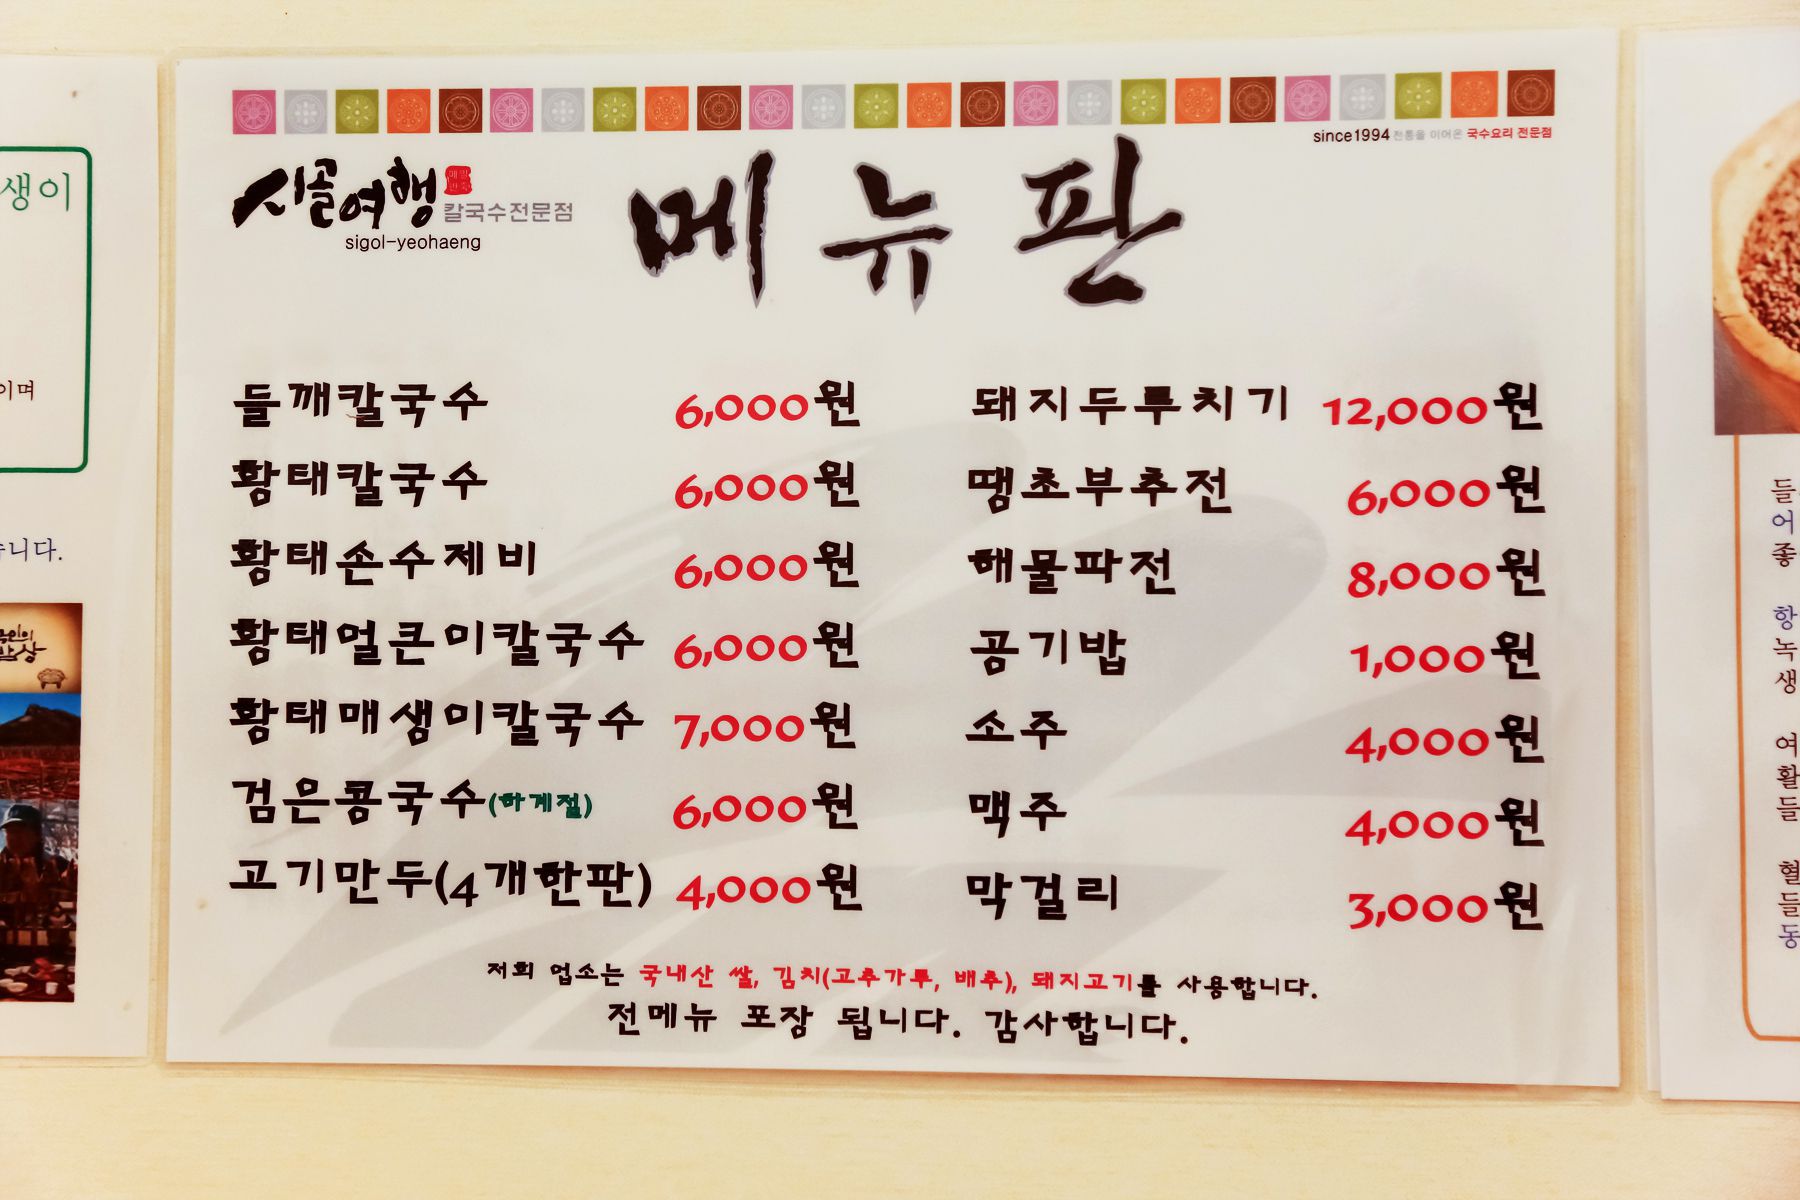 since1994 전통을 이어온 국수요리 전문점
시골여행 칼국수전문점
sigol-yeohaeng
메뉴판
들깨칼국수 6,000원
황태칼국수 6,000원
황태손수제비 6,000원
황태얼큰미칼국수 6,000원
황태매생미칼국수 7,000원
검은콩국수(하게절) 6,000원
고기만두(4개한판) 4,000원
돼지두루치기 12,000원
땡초부추전 6,000원
해물파전 8,000원
공기밥 1,000원
소주 4,000원
맥주 4,000원
막걸리 3,000원
저희 업소는 국내산 쌀, 김치(고추가루, 배추), 돼지고기를 사용합니다.
전메뉴 포장 됩니다. 감사합니다.
생이
이며
습니다.
밥상
들
어
좋
항
녹
생
여
활
들
혈
들
동